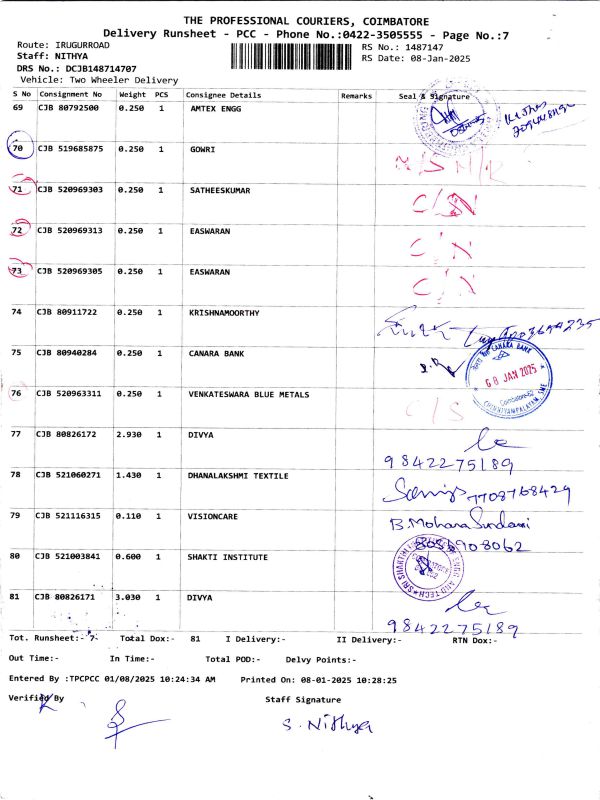 THE PROFESSIONAL COURIERS, COIMBATORE
Delivery Runsheet - PCC - Phone No.:0422-3505555 - Page No.:7
Route: IRUGURROAD
RS No.: 1487147
Staff: NITHYA
RS Date: 08-Jan-2025
DRS No.: DCJB148714707
Vehicle: Two Wheeler Delivery
S No Consignment No Weight PCS Consignee Details Remarks Seal & Signature
69 CJB 80792500 0.250 1 AMTEX ENGG
70 CJB 519685875 0.250 1 GOWRI
71 CJB 520969303 0.250 1 SATHEESKUMAR C/S N
72 CJB 520969313 0.250 1 EASWARAN C/N
73 CJB 520969305 0.250 1 EASWARAN C/N
74 CJB 80911722 0.250 1 KRISHNAMOORTHY
75 CJB 80940284 0.250 1 CANARA BANK
CANARA BANK
08 JAN 2025
Coimbatore-62
CHINNIYAMPALAYAM, SME
76 CJB 520963311 0.250 1 VENKATESWARA BLUE METALS C/S
77 CJB 80826172 2.930 1 DIVYA
9842275189
78 CJB 521060271 1.430 1 DHANALAKSHMI TEXTILE
7708768429
79 CJB 521116315 0.110 1 VISIONCARE B. Mohana Sundari
80 CJB 521003841 0.600 1 SHAKTI INSTITUTE
81 CJB 80826171 3.030 1 DIVYA
9842275189
Tot. Runsheet:- 7- Total Dox:- 81 I Delivery:- II Delivery:- RTN Dox:-
Out Time:- In Time:- Total POD:- Delvy Points:-
Entered By :TPCPCC 01/08/2025 10:24:34 AM Printed On: 08-01-2025 10:28:25
Verified By Staff Signature
S. Nithya